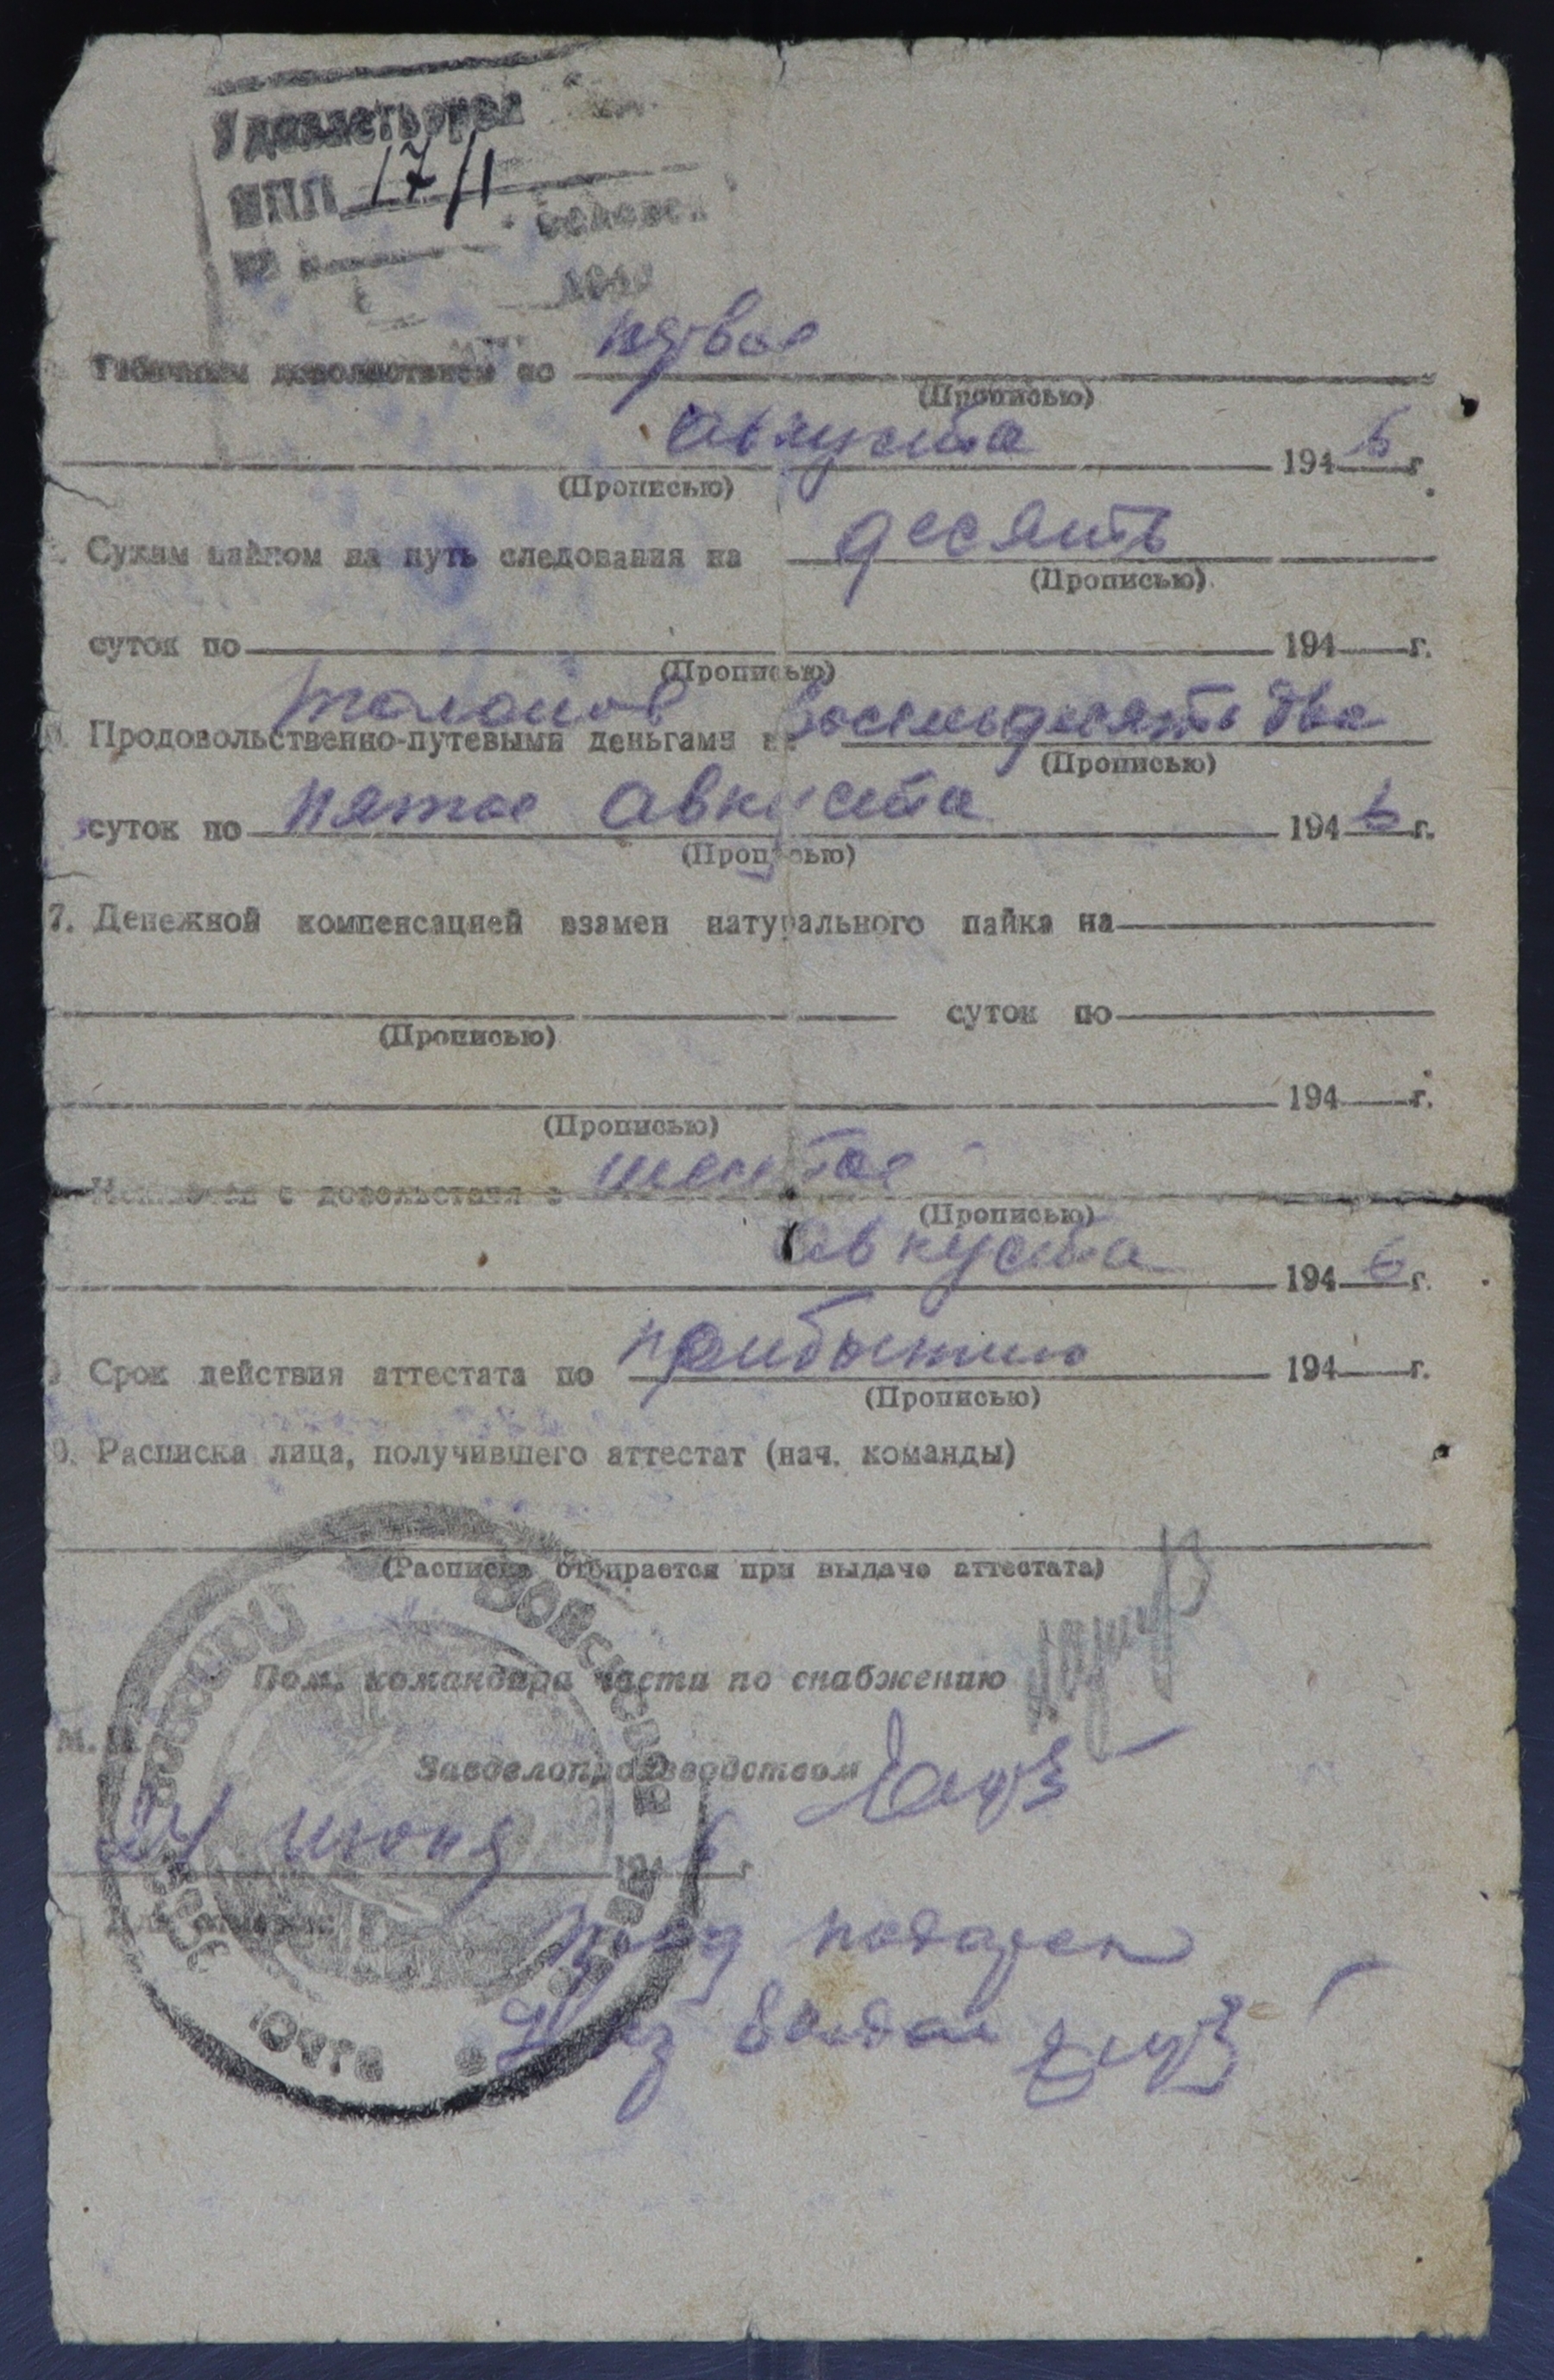 Удовлетворен
ППП 17/1
Табачным довольствием по первое
(Прописью)
августа 1946 г
(Прописью)
Сухим пайком на путь следования на десять
(Прописью)
суток по 194 г.
(Прописью)
талонов восемьдесят два
Продовольственно-путевыми деньгами
(Прописью)
суток по пятое августа 1946 г.
(Прописью)
7. Денежной компенсацией взамен натурального пайка на
суток по
(Прописью)
194 г.
(Прописью)
с довольствия с шестое
(Прописью)
августа 1946 г.
Срок действия аттестата по прибытию 194 г.
(Прописью)
0. Расписка лица, получившего аттестат (нач. команды)
(Расписка отбирается при выдаче аттестата)
Пом. командира части по снабжению
М. П.
Завделопроизводством
24 июня 1946 г
подарок
выдан